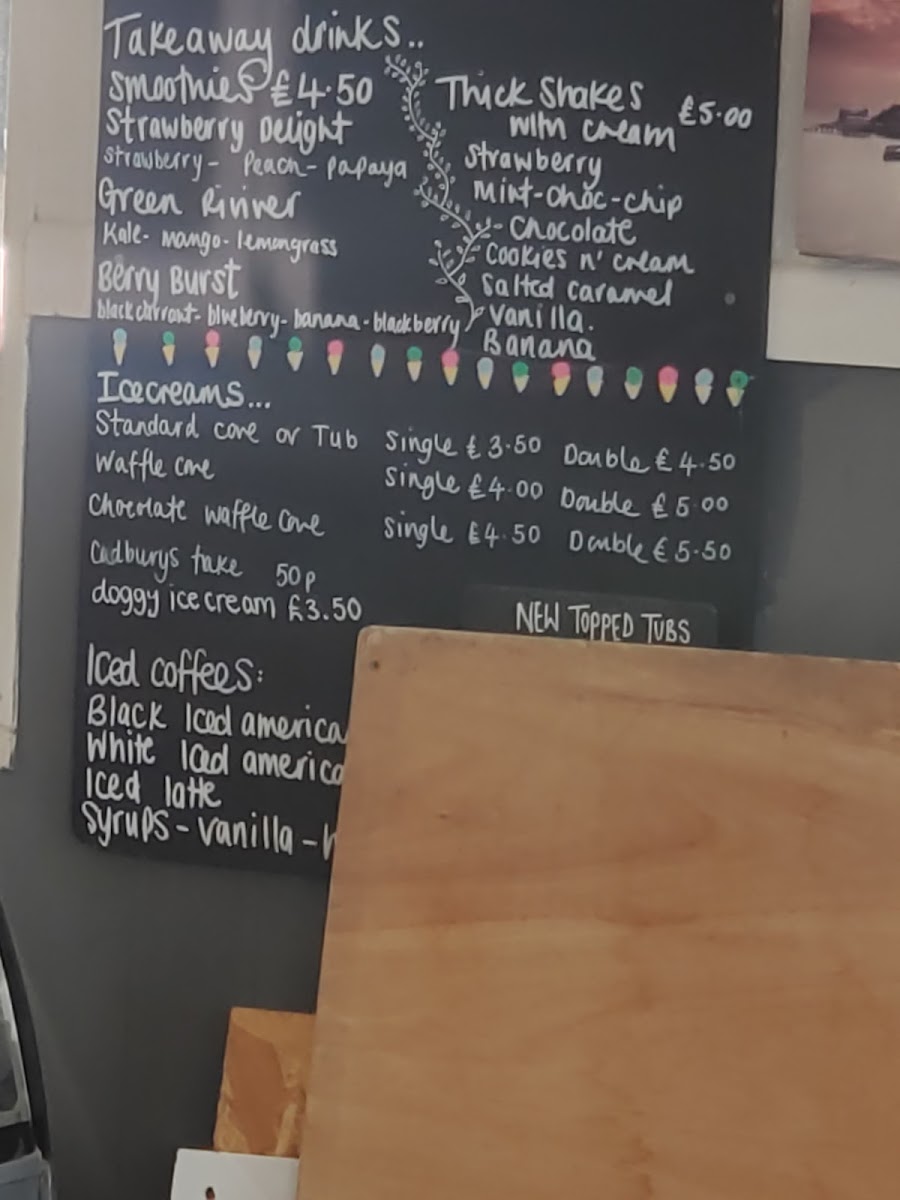 Takeaway drinks..
Smoothies £4.50
Strawberry Delight
Strawberry - Peach - Papaya
Green Rivver
Kale - mango - lemongrass
Berry Burst
blackcurrant - blueberry - banana - blackberry
Thick Shakes £5.00
with cream
Strawberry
Mint-choc-chip
Chocolate
Cookies n' cream
Salted caramel
Vanilla.
Banana
Icecreams...
Standard cone or Tub Single £3.50 Double £4.50
Waffle cone Single £4.00 Double £5.00
Chocolate waffle cone Single £4.50 Double £5.50
Cadburys flake 50p
doggy ice cream £3.50
NEW TOPPED TUBS
Iced coffees:
Black Iced america
White Iced america
Iced latte
Syrups - vanilla -